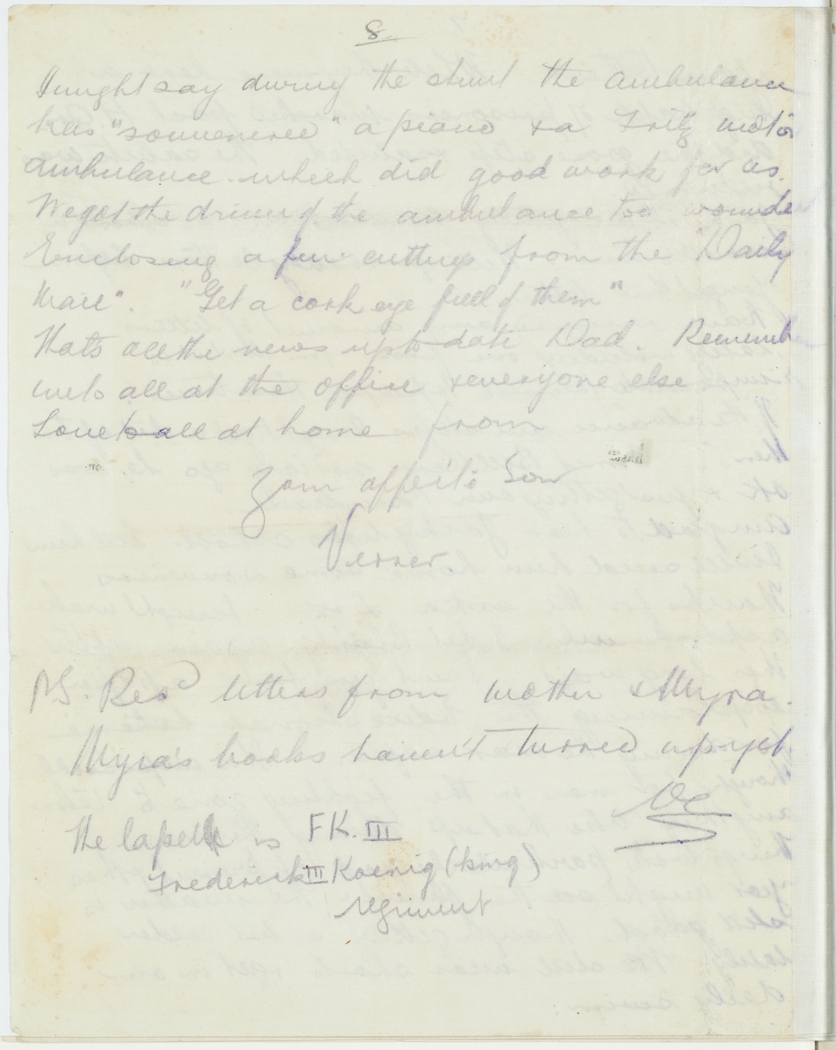 8
I might say during the stunt the ambulance
has "souveneree" a piano & a Fritz motor
ambulance which did good work for us.
We got the driver of the ambulance too wounde
Enclosing a few cuttings from the "Daily
Mail". "Get a cork eye full of them"
Thats all the news up to date Dad. Rememb
me to all at the office & everyone else
Love to all at home from
Your affec'te Son
Verner.
PS. Recd letters from mother & Myra.
Myra's books haven't turned up yet
The lapell is FK. III
Frederick III Koenig (king)
regiment